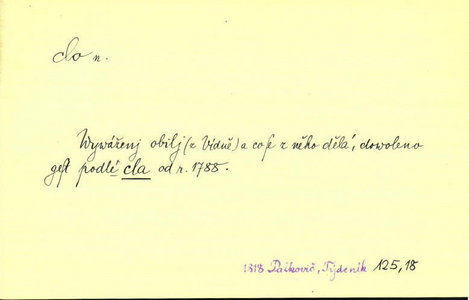 clo n.
Wywáženj obilj (z Vídně) a co se z něho dělá, dowoleno
gest podlé cla od r. 1788.
1818 Palkovič, Týdeník 125,18